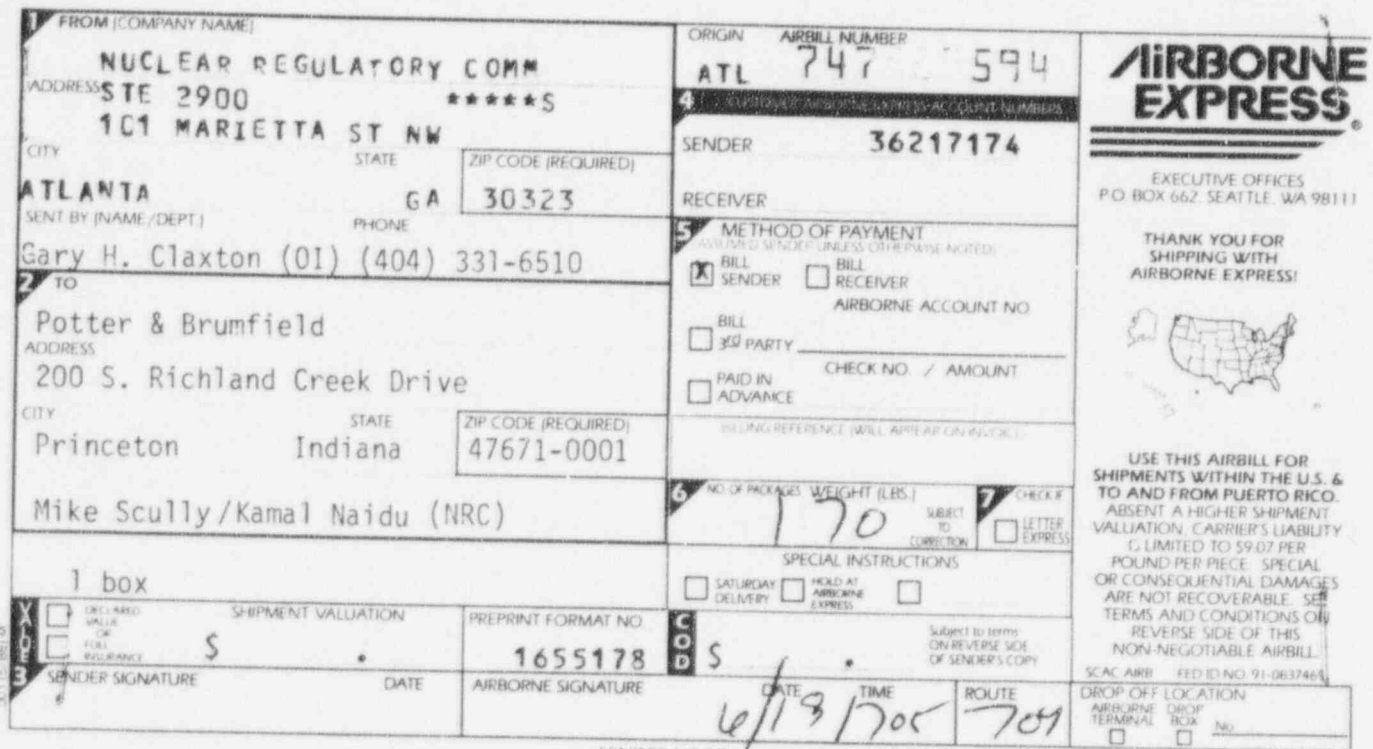 1 FROM (COMPANY NAME)
NUCLEAR REGULATORY COMM
ADDRESS STE 2900 *****S
101 MARIETTA ST NW
CITY STATE ZIP CODE (REQUIRED)
ATLANTA GA 30323
SENT BY (NAME/DEPT.) PHONE
Gary H. Claxton (OI) (404) 331-6510
2 TO
Potter & Brumfield
ADDRESS
200 S. Richland Creek Drive
CITY STATE ZIP CODE (REQUIRED)
Princeton Indiana 47671-0001
Mike Scully/Kamal Naidu (NRC)
1 box
VALUE
DECLARED VALUE OR FULL INSURANCE
SHIPMENT VALUATION
$ .
PREPRINT FORMAT NO
1655178
3 SENDER SIGNATURE DATE
AIRBORNE SIGNATURE
DATE TIME ROUTE
6/18/705 704
ORIGIN AIRBILL NUMBER
ATL 747 594
4 CUSTOMER AIRBORNE EXPRESS ACCOUNT NUMBERS
SENDER 36217174
RECEIVER
5 METHOD OF PAYMENT
(ASSUMED SENDER UNLESS OTHERWISE NOTED)
X BILL SENDER
BILL RECEIVER
AIRBORNE ACCOUNT NO
BILL 3rd PARTY
CHECK NO. / AMOUNT
PAID IN ADVANCE
BILLING REFERENCE (WILL APPEAR ON INVOICE)
6 NO. OF PACKAGES WEIGHT (LBS.)
1 70
SUBJECT TO CORRECTION
7 CHECK IF
LETTER EXPRESS
SPECIAL INSTRUCTIONS
SATURDAY DELIVERY
HOLD AT AIRBORNE EXPRESS
COD $ .
Subject to terms
ON REVERSE SIDE
OF SENDER'S COPY
AIRBORNE
EXPRESS®
EXECUTIVE OFFICES
P.O. BOX 662, SEATTLE, WA 98111
THANK YOU FOR
SHIPPING WITH
AIRBORNE EXPRESS!
USE THIS AIRBILL FOR
SHIPMENTS WITHIN THE U.S. &
TO AND FROM PUERTO RICO.
ABSENT A HIGHER SHIPMENT
VALUATION, CARRIER'S LIABILITY
IS LIMITED TO $9.07 PER
POUND PER PIECE. SPECIAL
OR CONSEQUENTIAL DAMAGES
ARE NOT RECOVERABLE. SEE
TERMS AND CONDITIONS ON
REVERSE SIDE OF THIS
NON-NEGOTIABLE AIRBILL.
SCAC AIRB FED ID NO. 91-0837469
DROP OFF LOCATION
AIRBORNE TERMINAL
DROP BOX
No.